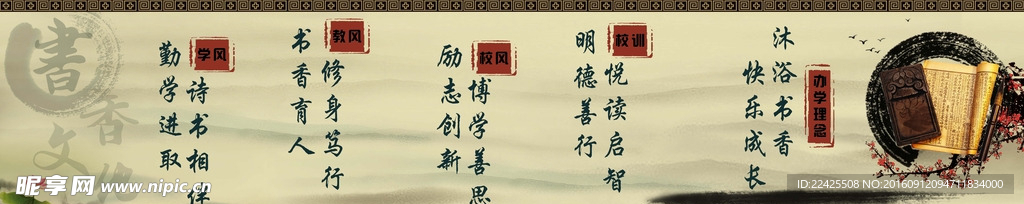 办学理念
沐浴书香
快乐成长
校训
悦读启智
明德善行
校风
博学善思
励志创新
教风
修身笃行
书香育人
学风
诗书相伴
勤学进取
書香文化
昵享网 www.nipic.cn
ID:22425508 NO:20160912094711834000